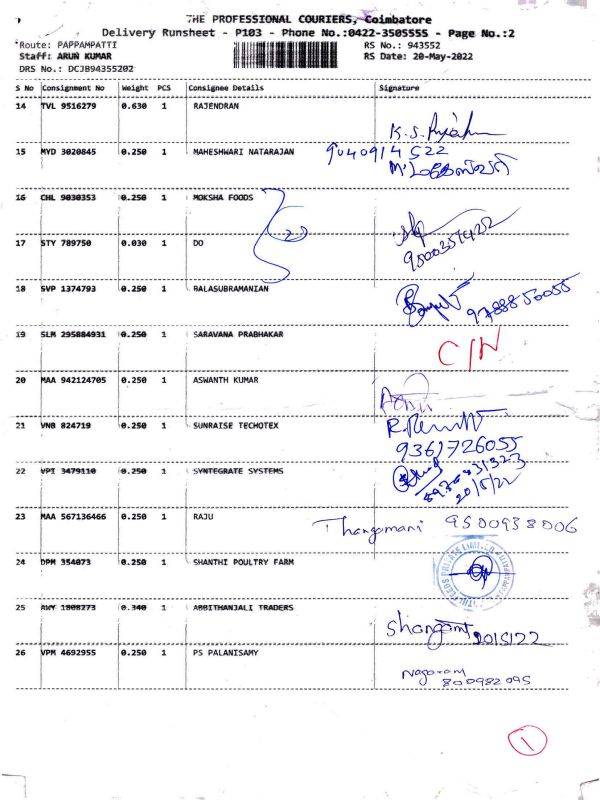 THE PROFESSIONAL COURIERS, Coimbatore
Delivery Runsheet - P103 - Phone No.:0422-3505555 - Page No.:2
Route: PAPPAMPATTI RS No.: 943552
Staff: ARUN KUMAR RS Date: 20-May-2022
DRS No.: DCJB94355202
S No Consignment No Weight PCS Consignee Details Signature
14 TVL 9516279 0.630 1 RAJENDRAN
K.S.
15 MYD 3020845 0.250 1 MAHESHWARI NATARAJAN 9040914522
M. மகேஸ்வரி
16 CHL 9030353 0.250 1 MOKSHA FOODS
17 STY 789750 0.030 1 DO
18 SVP 1374793 0.250 1 BALASUBRAMANIAN
9788850055
19 SLM 295884931 0.250 1 SARAVANA PRABHAKAR
C/N
20 MAA 942124705 0.250 1 ASWANTH KUMAR
21 VNB 824719 0.250 1 SUNRAISE TECHOTEX
9361726055
22 VPI 3479110 0.250 1 SYNTEGRATE SYSTEMS
20/5/22
23 MAA 567136466 0.250 1 RAJU Thangamani 9500938006
24 DPM 354073 0.250 1 SHANTHI POULTRY FARM
25 AWY 1808273 0.340 1 ABBITHANJALI TRADERS
20/5/22
26 VPM 4692955 0.250 1 PS PALANISAMY
800982095
1